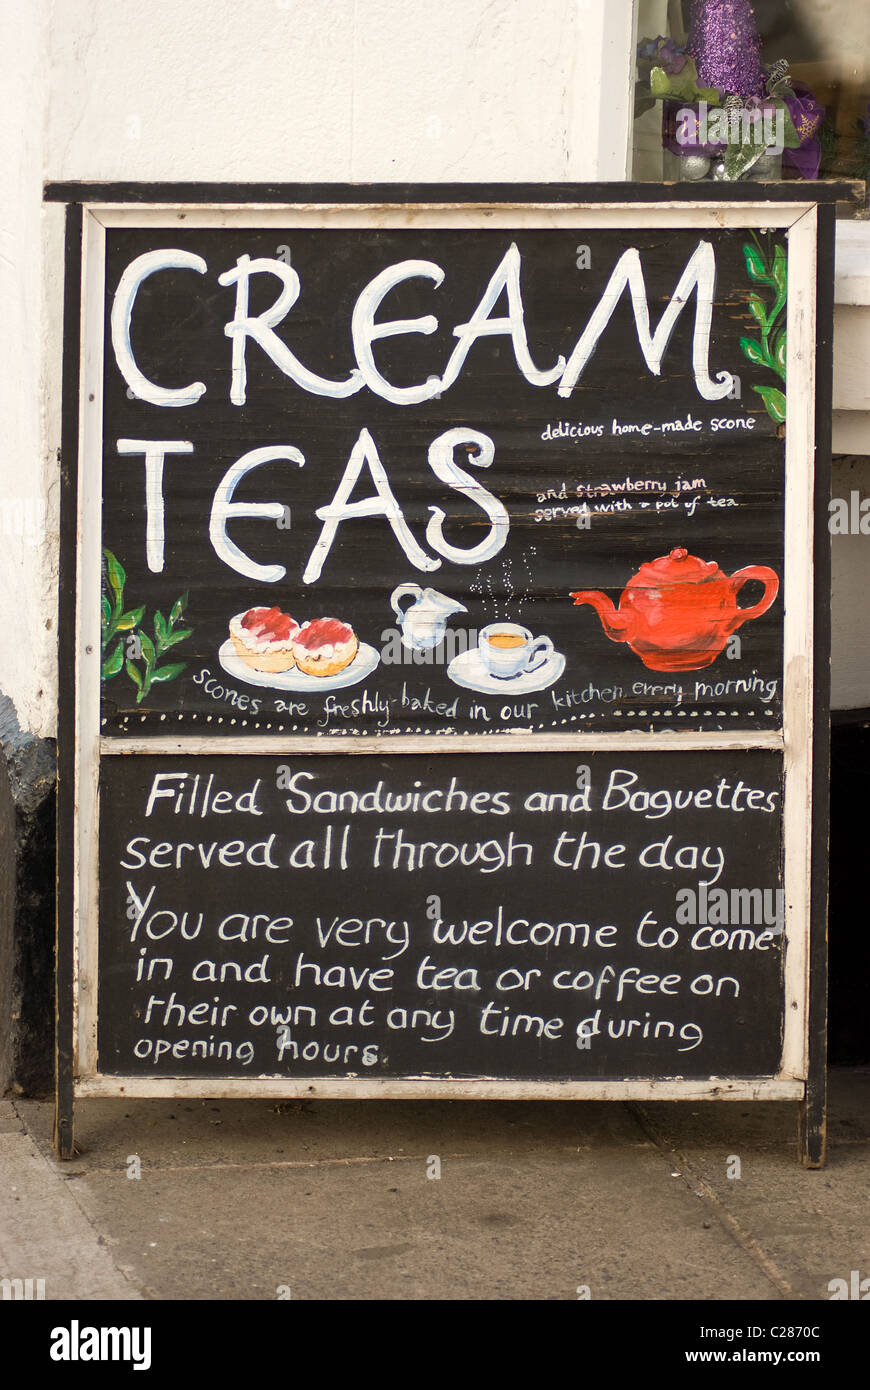 CREAM
TEAS
delicious home-made scone
and strawberry jam
served with a pot of tea
scones are freshly-baked in our kitchen every morning
Filled Sandwiches and Baguettes
served all through the day
You are very welcome to come
in and have tea or coffee on
their own at any time during
opening hours.
alamy
alamy
Image ID: C2870C
www.alamy.com